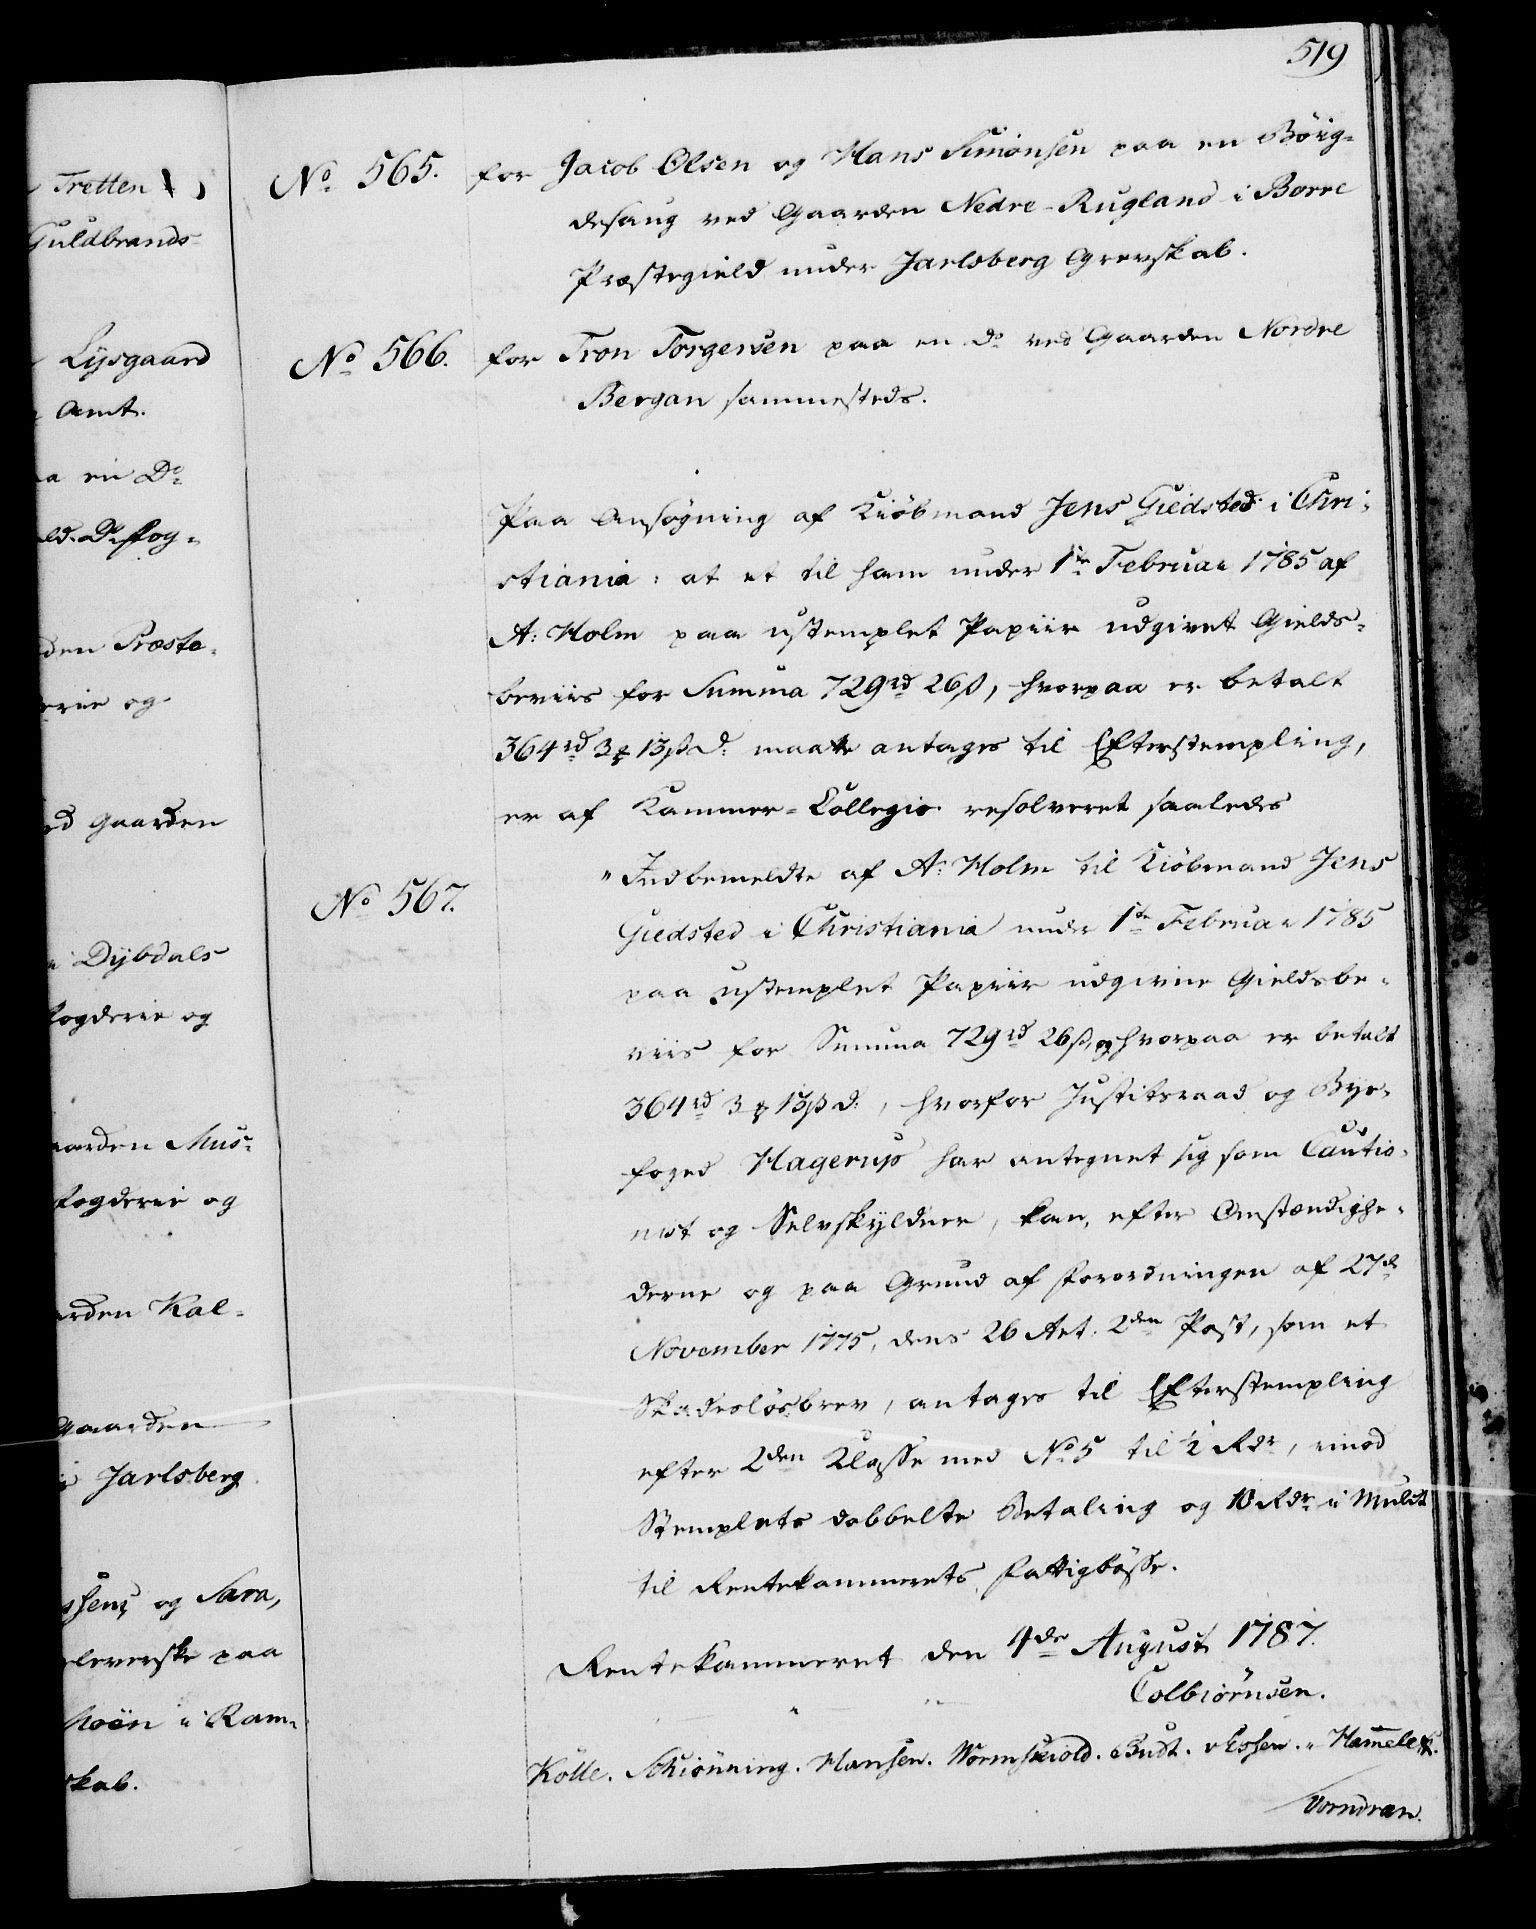 519
No 565. for Jacob Olsen og Hans Simonsen paa en Böig-
desaug ved Gaarden Nedre-Rugland i Borre
Præstegield under Jarlsberg Grevskab.
No 566. for Tron Torgersen paa en Do ved Gaarden Nordre
Bergan sammesteds.
Paa Ansøgning af Kiöbmand Jens Giedsted i Chri-
stiania: at et til ham under 1te Februar 1785 af
A: Holm paa ustemplet Papiir udgivet Gields-
beviis for Summa 729rd 26ß, hvorpaa er betalt
364rd 3 13ß d: maatte antages til Efterstempling,
er af Kammer-Collegio resolveret saaledes
No 567. "Indbemeldte af A: Holm til Kiöbmand Jens
Giedsted i Christiania under 1te Februar 1785
paa ustemplet Papiir udgivne Gieldsbe-
viis for Summa 729rd 26ß, og hvorpaa er betalt
364rd 3 13ß d:, hvorfor Justitsraad og Bye-
foged Hagerup har antegnet sig som Cautio-
nist og Selvskyldner, kan, efter Omstændighe-
derne og paa Grund af Forordningen af 27de
November 1775, dens 26 Art. 2den Post, som et
Skadeslösbrev, antages til Efterstempling
efter 2den Klasse med No 5 til ½ Rdr, imod
Stemplets dobbelte Betaling og 10 Rdr i Mulct
til Rentekammerets Fattigbösse.
Rentekammeret den 4de August 1787.
Colbiörnsen.
Kölle. Schiönning. Hansen. Wormskiold. Budt. vEssen. Hammeleff.
Vorndran.
Tretten
Guldbrands-
Lysgaard
Amt.
en Do
den Præste-
og
Gaarden
Dybdals
fogderie og
Gaarden Mus-
fogderie og
Kal-
Gaarden
i Jarlsberg
og Sara,
paa
i Ram-
skab.